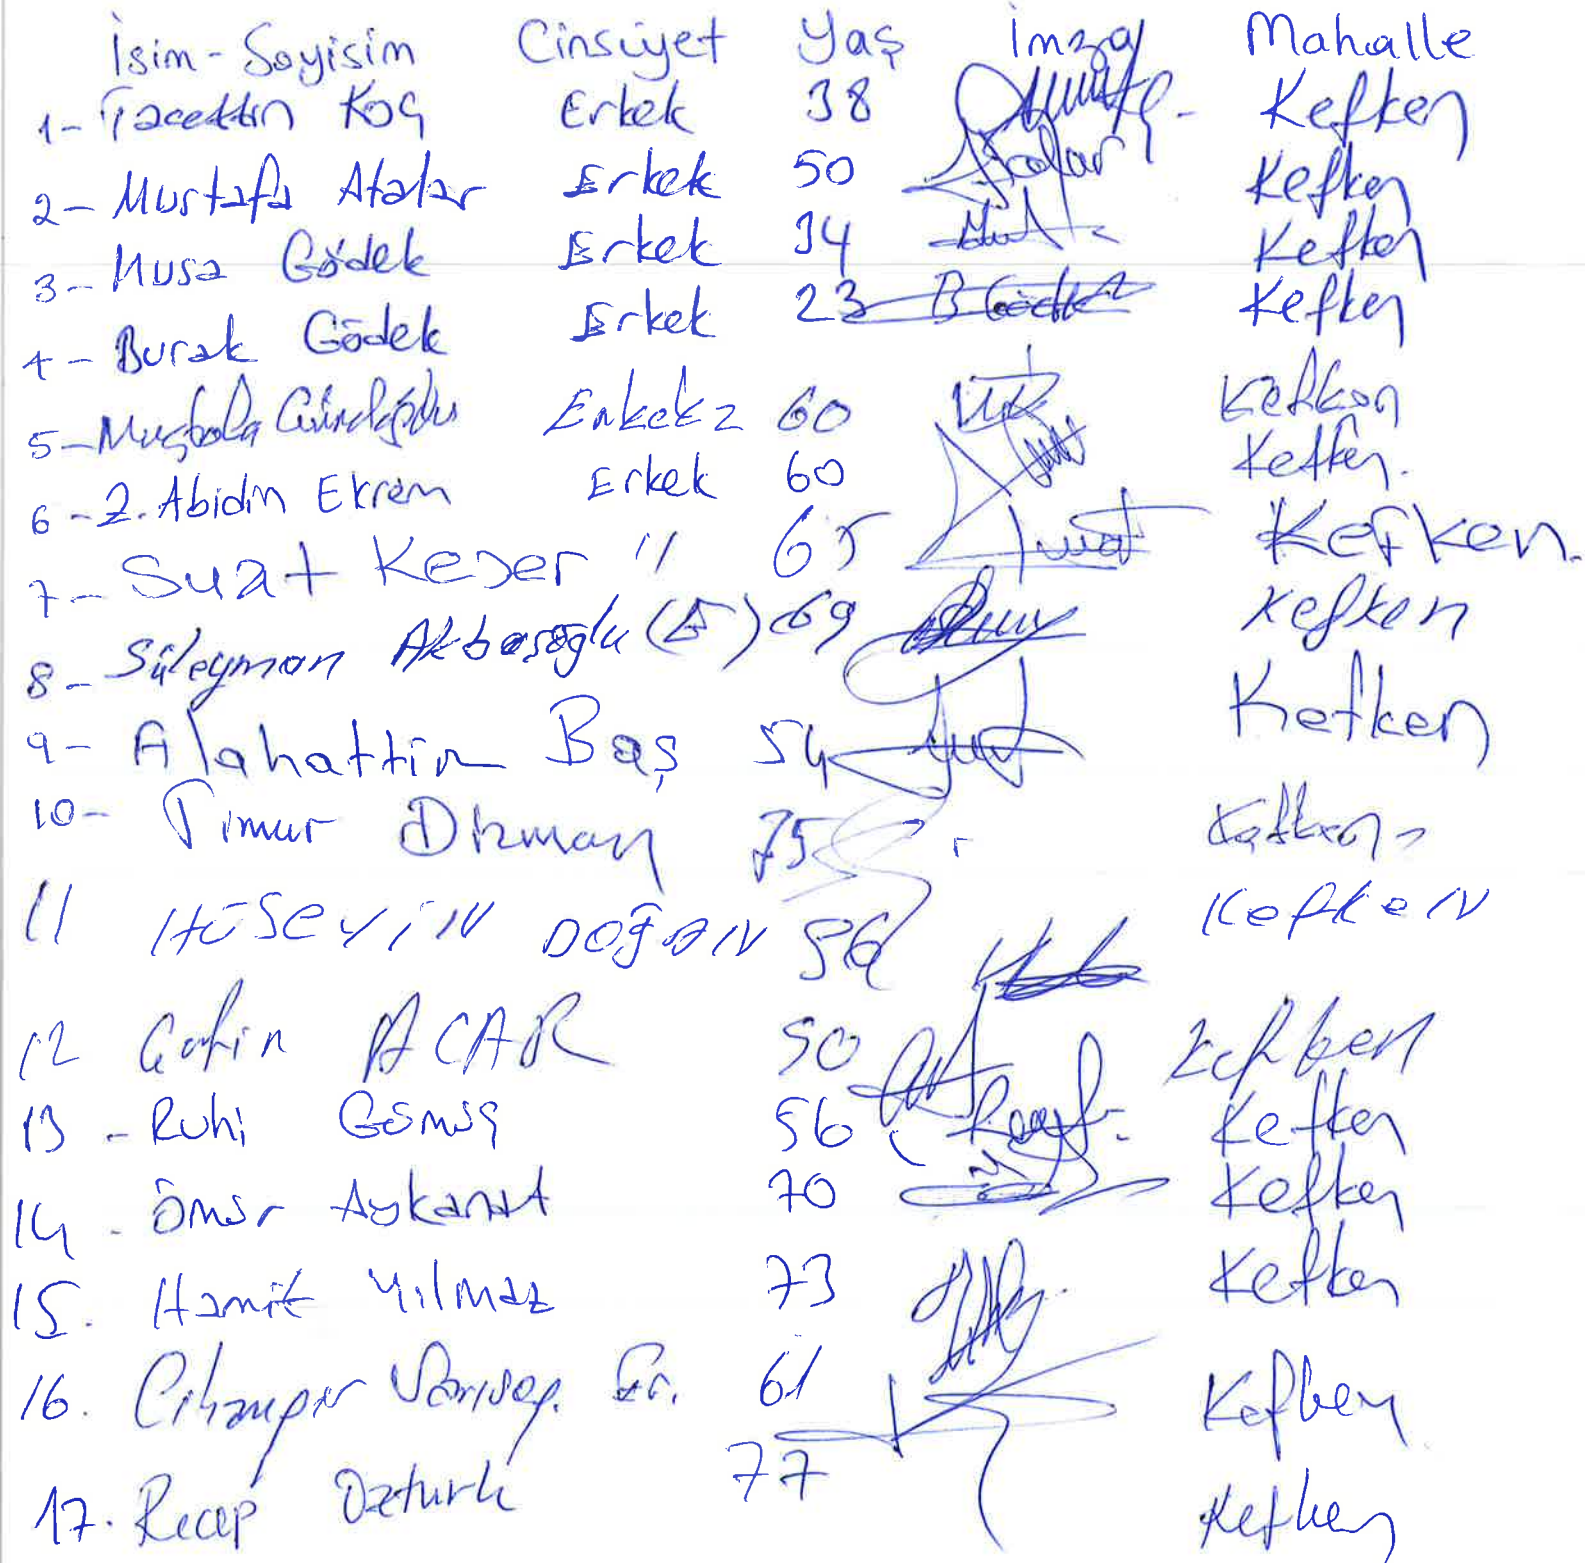 İsim - Soyisim Cinsiyet Yaş İmza Mahalle
1- Tacettin Koç Erkek 38 Kefken
2- Mustafa Atalar Erkek 50 Kefken
3- Musa Gödek Erkek 34 Kefken
4- Burak Gödek Erkek 23 B Gödek Kefken
5- Mustafa Erkek 60 Kefken
6- Z. Abidin Ekrem Erkek 60 Kefken.
7- Suat Keser " 65 Suat Kefken.
8- Süleyman Akbaşoğlu (E) 69 Kefken
9- Alahattin Baş 54 Kefken
10- Timur Dizman 75 Kefken
11 HÜSEYİN DOĞAN 56 KefkeN
12 Çetin ACAR 50 Kefken
13 - Ruhi Gümüş 56 Kefken
14 - Ömür Aykanat 70 Kefken
15. Hamit Yılmaz 73 Kefken
16. Er. 61 Kefken
17. Recep Öztürk 77 Kefken